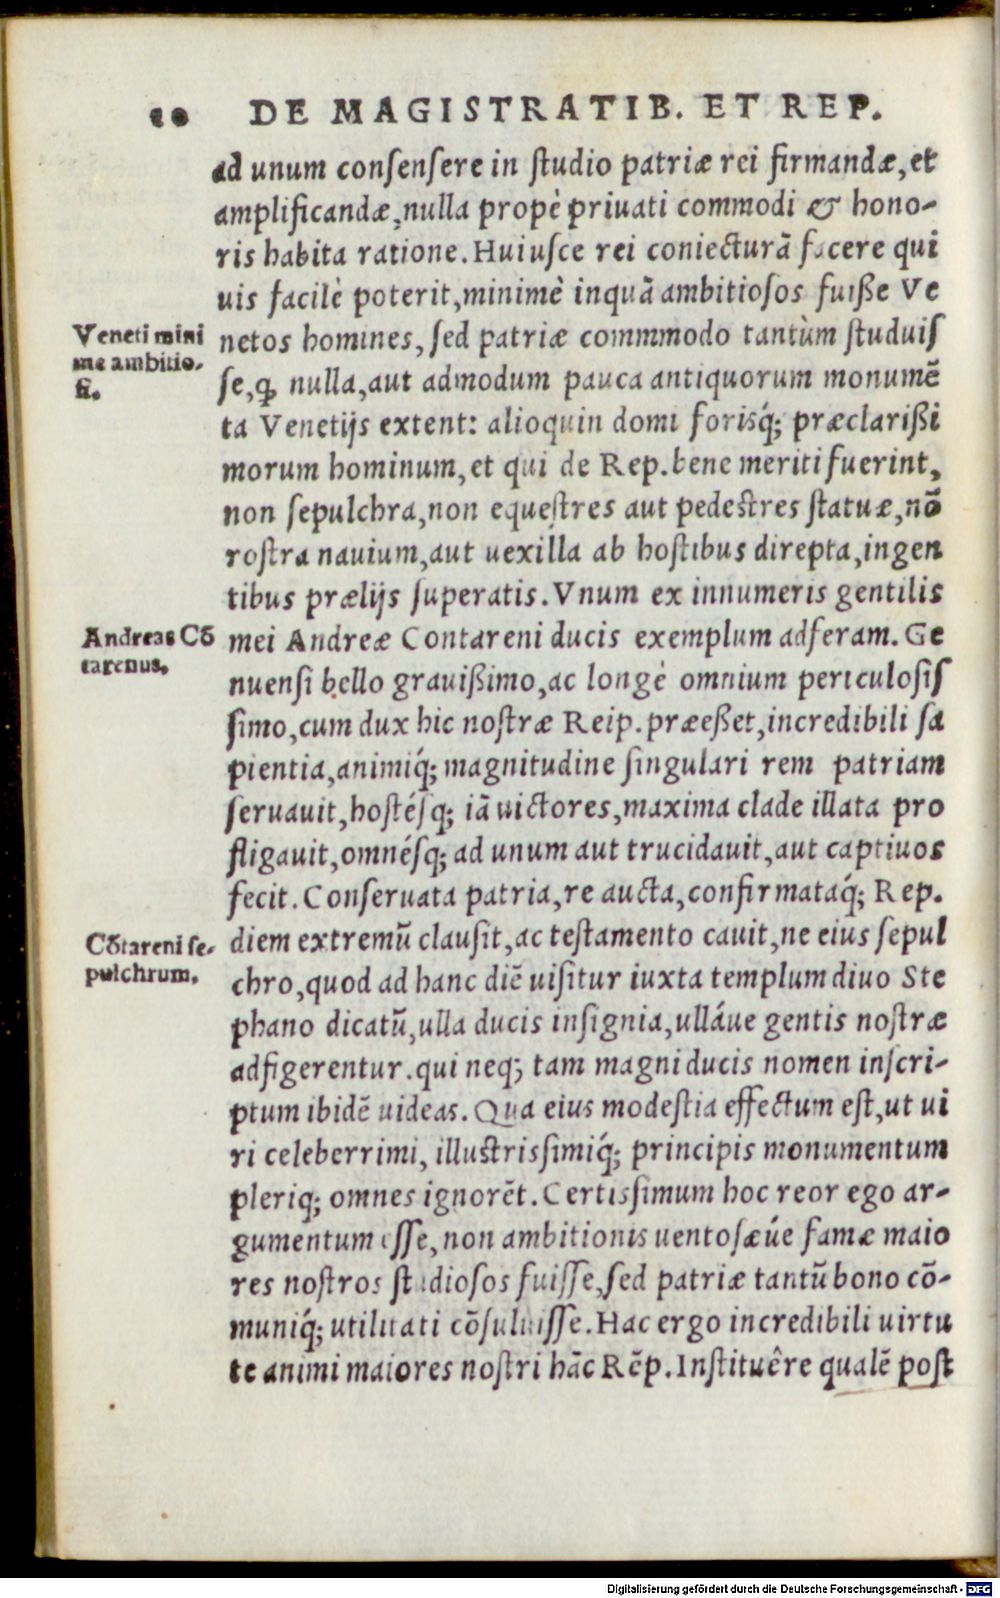 10 DE MAGISTRATIB. ET REP.
ad unum consensere in studio patriæ rei firmandæ, et
amplificandæ, nulla propè priuati commodi & hono-
ris habita ratione. Huiusce rei coniecturã facere qui
uis facilè poterit, minimè inquã ambitiosos fuiße Ve
Veneti mini
me ambitio-
si.
netos homines, sed patriæ commmodo tantùm studuis
se, ꝙ nulla, aut admodum pauca antiquorum monumẽ
ta Venetijs extent: alioquin domi forisq́; præclarißi
morum hominum, et qui de Rep. bene meriti fuerint,
non sepulchra, non equestres aut pedestres statuæ, nõ
rostra nauium, aut uexilla ab hostibus direpta, ingen
tibus prælijs superatis. Vnum ex innumeris gentilis
Andreas Cõ
tarenus.
mei Andreæ Contareni ducis exemplum adferam. Ge
nuensi bello grauißimo, ac longè omnium periculosis
simo, cum dux hic nostræ Reip. præeßet, incredibili sa
pientia, animiq́; magnitudine singulari rem patriam
seruauit, hostésq; iã uictores, maxima clade illata pro
fligauit, omnésq; ad unum aut trucidauit, aut captiuos
fecit. Conseruata patria, re aucta, confirmataq́; Rep.
Cõtareni se-
pulchrum.
diem extremũ clausit, ac testamento cauit, ne eius sepul
chro, quod ad hanc diẽ uisitur iuxta templum diuo Ste
phano dicatũ, ulla ducis insignia, ulláue gentis nostræ
adfigerentur. qui neq; tam magni ducis nomen inscri-
ptum ibidẽ uideas. Qua eius modestia effectum est, ut ui
ri celeberrimi, illustrissimiq́; principis monumentum
pleriq; omnes ignorẽt. Certissimum hoc reor ego ar-
gumentum esse, non ambitionis uentosæúe famæ maio
res nostros studiosos fuisse, sed patriæ tantũ bono cõ-
muniq́; utilitati cõsuluisse. Hac ergo incredibili uirtu
te animi maiores nostri hãc Rẽp. Instituêre qualẽ post
Digitalisierung gefördert durch die Deutsche Forschungsgemeinschaft - DFG